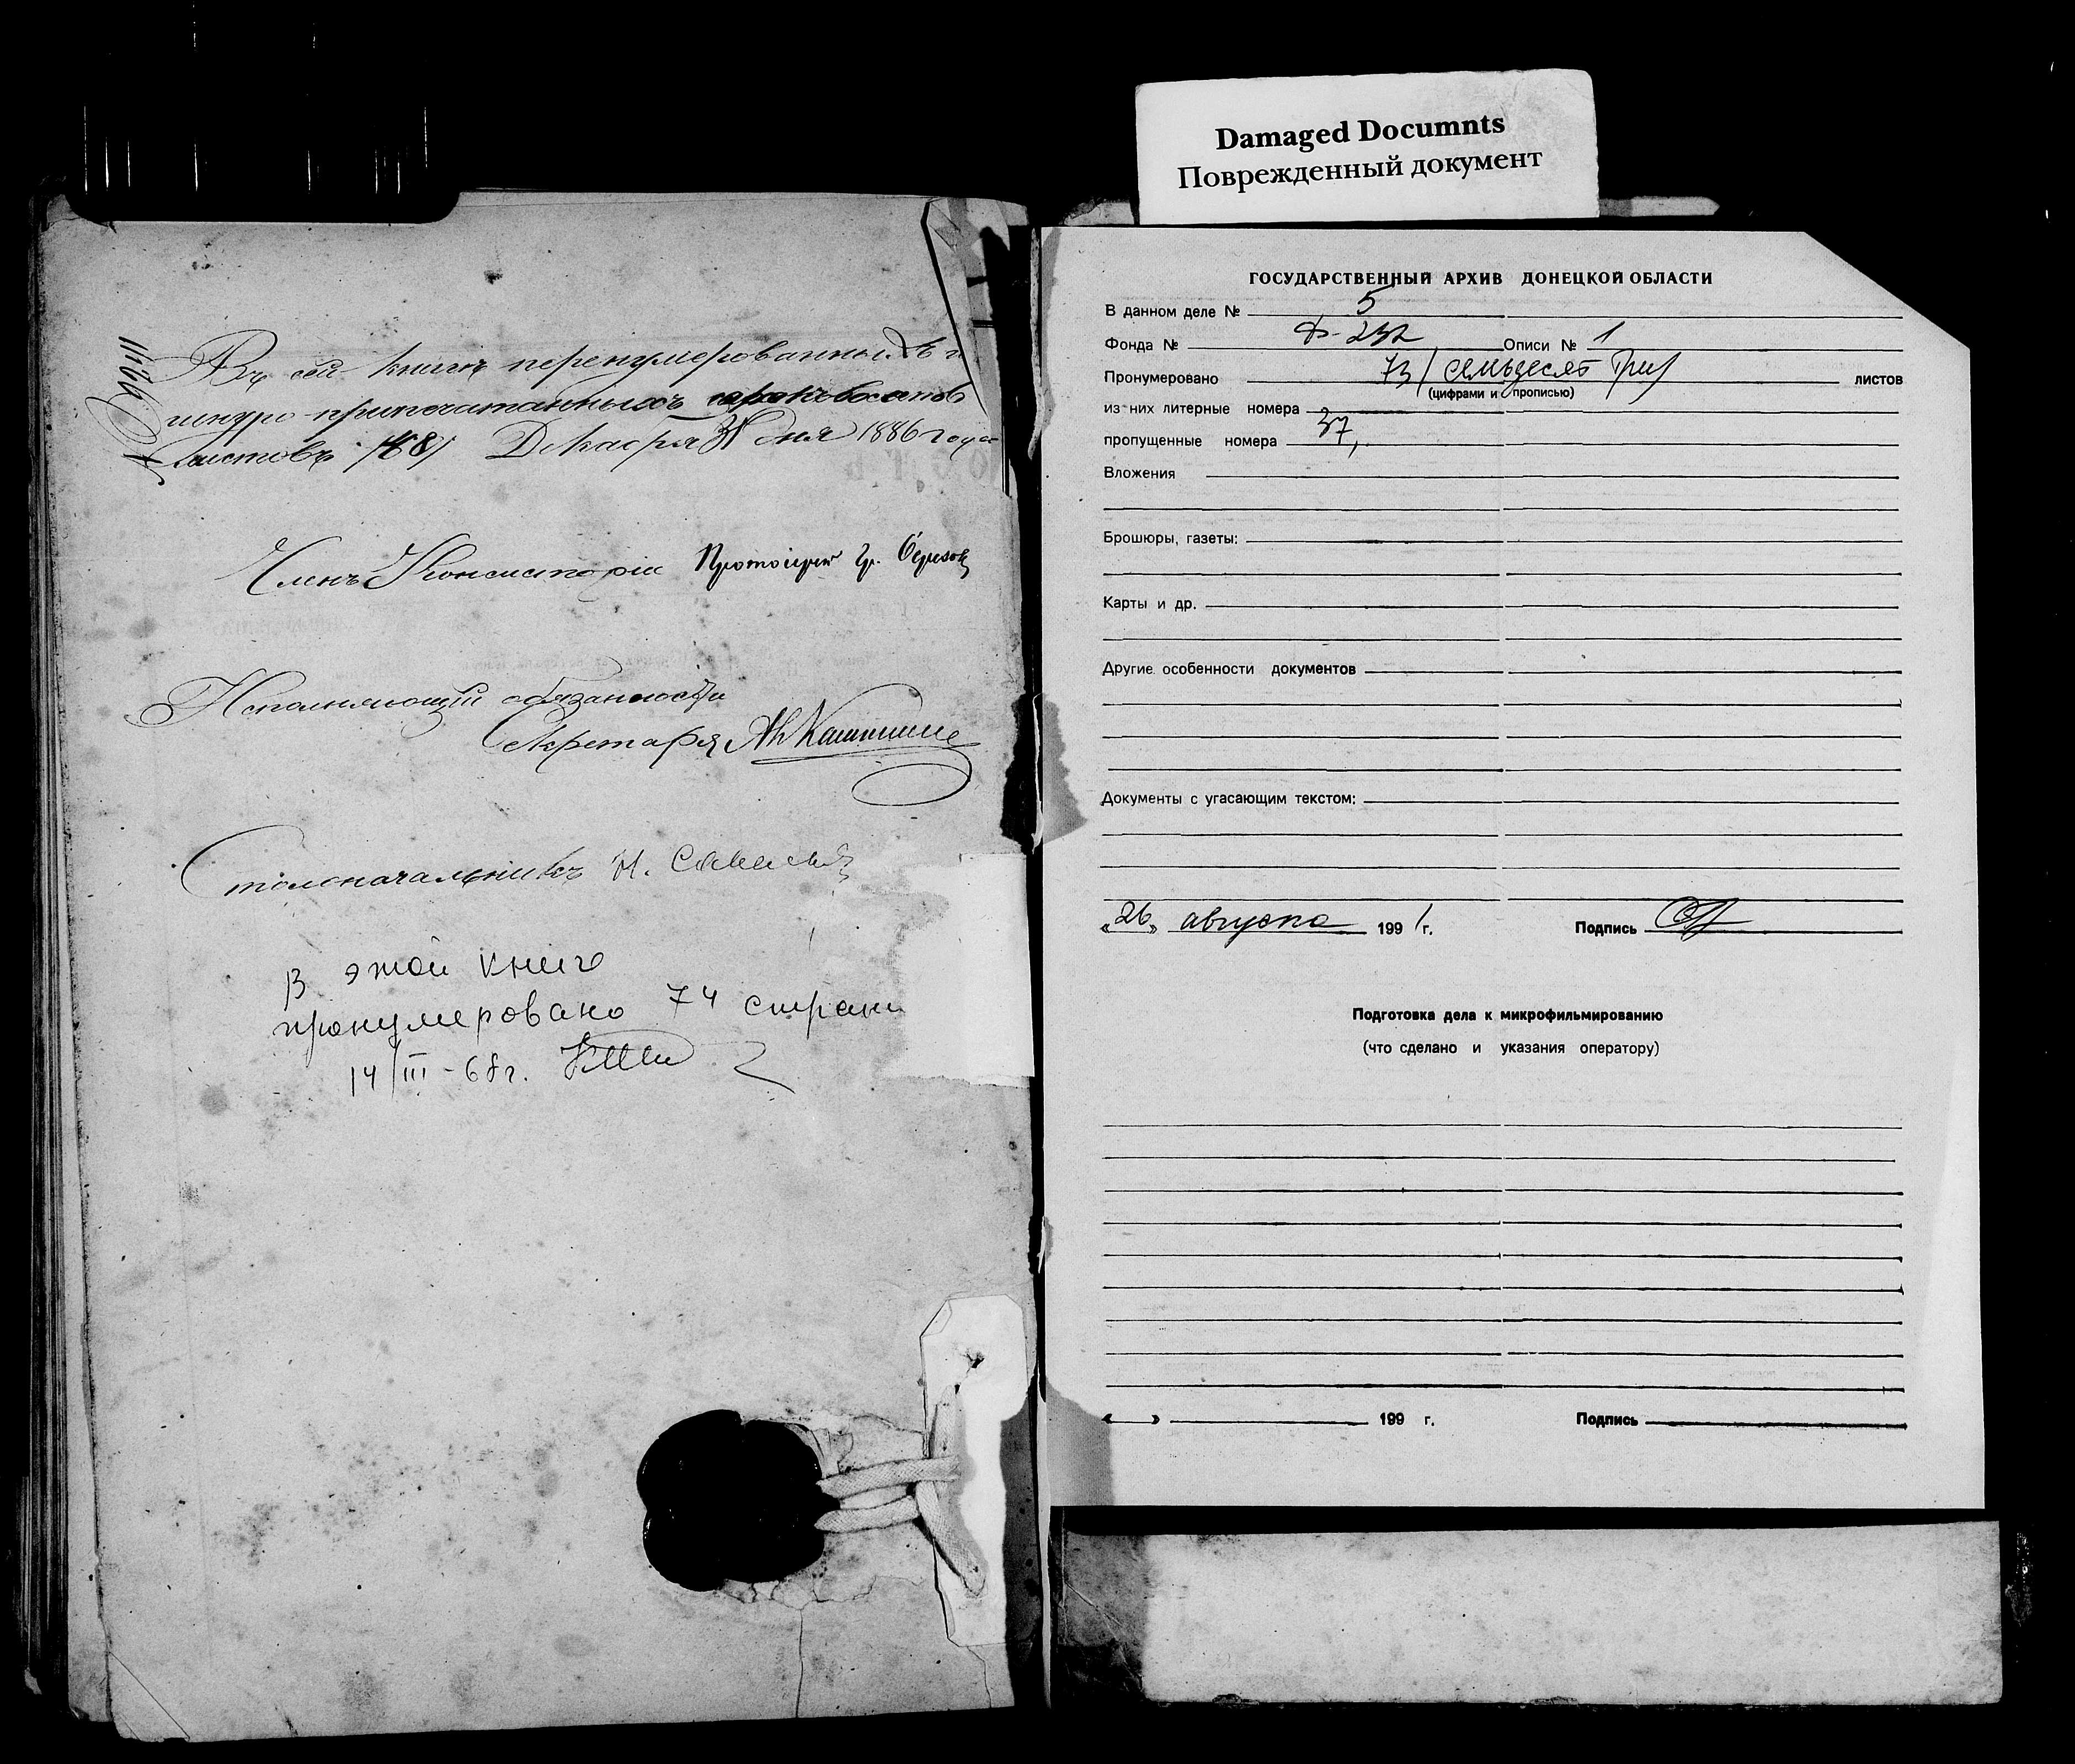 Damaged Documnts
Поврежденный документ
Въ сей книгѣ перенумерованныхъ и
шнуро-припечатанныхъ
листовъ /48/ Декабря 31 дня 1886 года
Членъ Консисторіи Протоіерей Гр.
Исполняющій обязанности
Секретаря
Столоначальникъ Н.
В этой книге
пронумеровано 74 страни
14/III-68г.
ГОСУДАРСТВЕННЫЙ АРХИВ ДОНЕЦКОЙ ОБЛАСТИ
В данном деле № 5
Фонда № Ф-232 Описи № 1
Пронумеровано 73/ семьдесят три/ листов
(цифрами и прописью)
из них литерные номера
пропущенные номера 37,
Вложения
Брошюры, газеты:
Карты и др.
Другие особенности документов
Документы с угасающим текстом:
«26» августа 1991 г. Подпись
Подготовка дела к микрофильмированию
(что сделано и указания оператору)
« » 199 г. Подпись